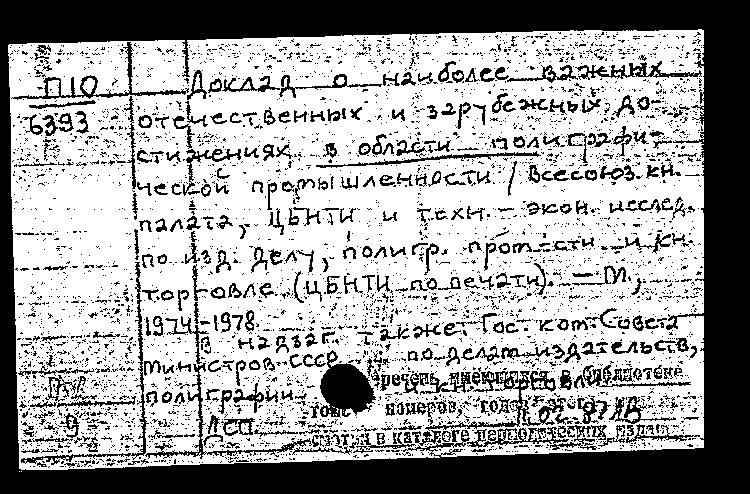 П10
6393
Доклад о наиболее важных
отечественных и зарубежных до-
стижениях в области полиграфи-
ческой промышленности / Всесоюз. кн.
палата, ЦБНТИ и техн.-экон. исслед.
по изд. делу, полигр. пром-сти и кн.
торговле (ЦБНТИ по печати). – М.,
1974-1978
В надзаг. также: Гос. ком. Совета
Министров СССР по делам издательств,
полиграфии и кн. торговли
Перечень имеющихся в библиотеке
номеров,
9
ДСП
в каталоге периодических издан